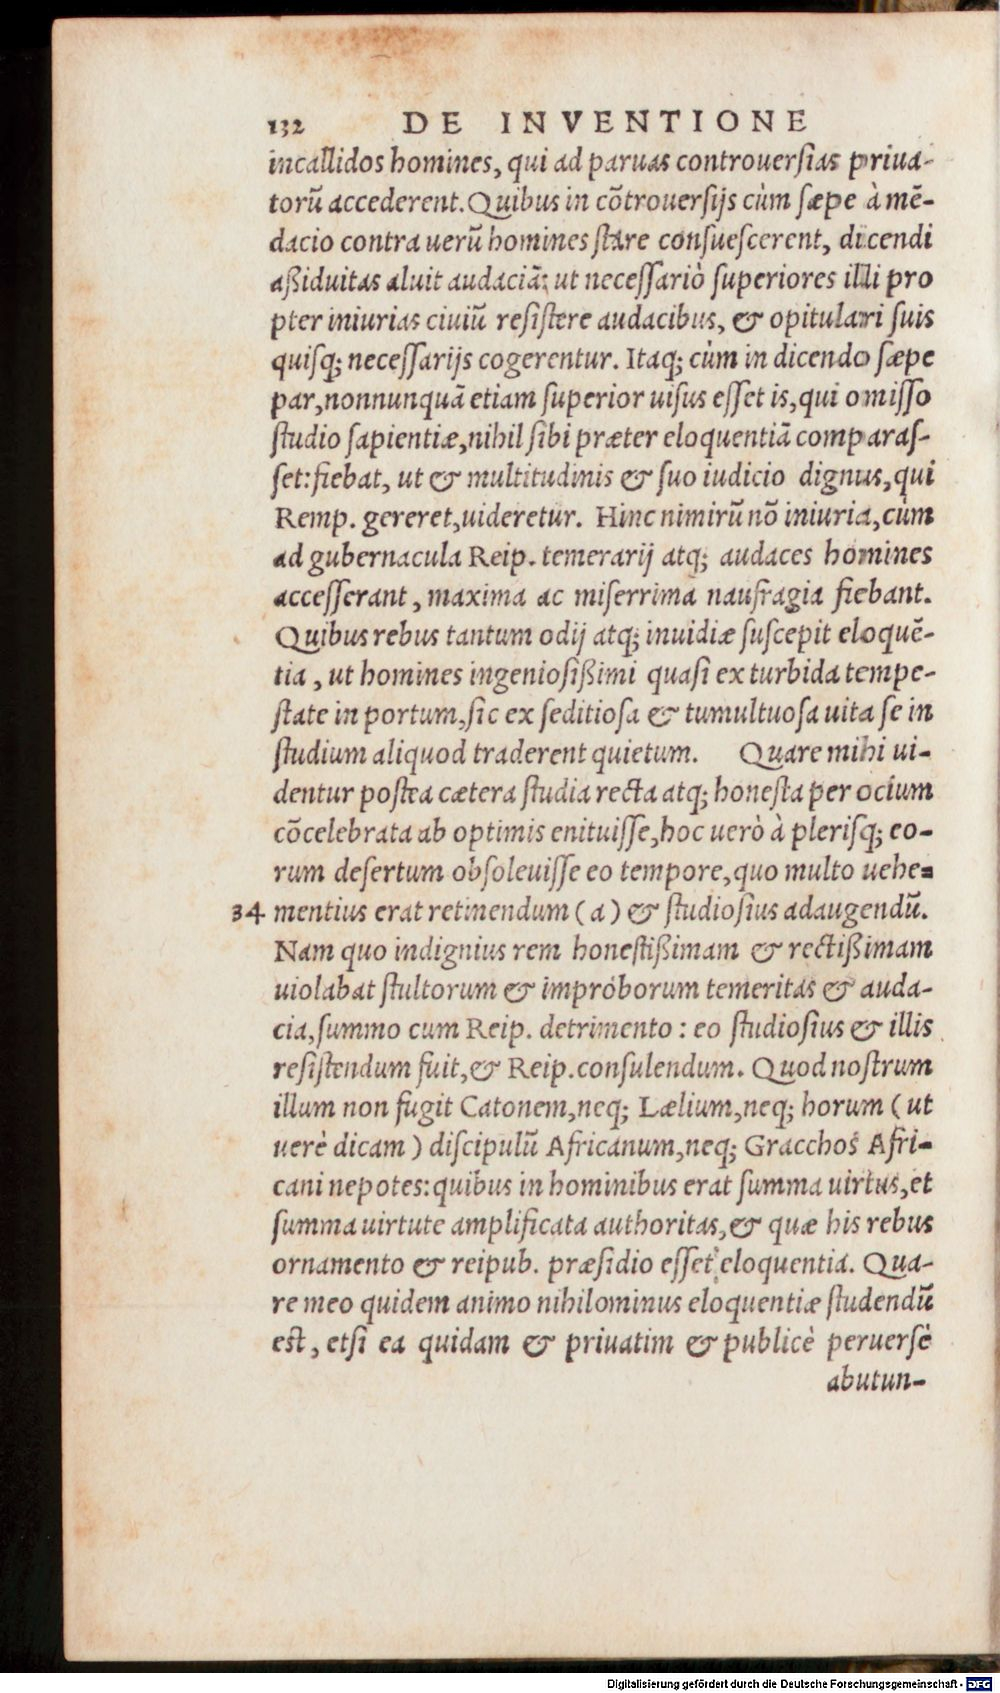 132 DE INVENTIONE
incallidos homines, qui ad paruas controuersias priua-
torũ accederent. Quibus in cõtrouersijs cùm sæpe à mẽ-
dacio contra uerũ homines stare consuescerent, dicendi
aßiduitas aluit audaciã: ut necessariò superiores illi pro
pter iniurias ciuiũ resistere audacibus, & opitulari suis
quisq; necessarijs cogerentur. Itaq; cùm in dicendo sæpe
par, nonnunquã etiam superior uisus esset is, qui omisso
studio sapientiæ, nihil sibi præter eloquentiã comparas-
set: fiebat, ut & multitudinis & suo iudicio dignus, qui
Remp. gereret, uideretur. Hinc nimirũ nõ iniuria, cùm
ad gubernacula Reip. temerarij atq; audaces homines
accesserant, maxima ac miserrima naufragia fiebant.
Quibus rebus tantum odij atq; inuidiæ suscepit eloquẽ-
tia, ut homines ingeniosißimi quasi ex turbida tempe-
state in portum, sic ex seditiosa & tumultuosa uita se in
studium aliquod traderent quietum. Quare mihi ui-
dentur postea cætera studia recta atq; honesta per ocium
cõcelebrata ab optimis enituisse, hoc uerò à plerisq; eo-
rum desertum obsoleuisse eo tempore, quo multo uehe-
34 mentius erat retinendum (a) & studiosius adaugendũ.
Nam quo indignius rem honestißimam & rectißimam
uiolabat stultorum & improborum temeritas & auda-
cia, summo cum Reip. detrimento: eo studiosius & illis
resistendum fuit, & Reip. consulendum. Quod nostrum
illum non fugit Catonem, neq; Lælium, neq; horum (ut
uerè dicam) discipulũ Africanum, neq; Gracchos Afri-
cani nepotes: quibus in hominibus erat summa uirtus, et
summa uirtute amplificata authoritas, & quæ his rebus
ornamento & reipub. præsidio esset eloquentia. Qua-
re meo quidem animo nihilominus eloquentiæ studendũ
est, etsi ea quidam & priuatim & publicè peruersè
abutun-
Digitalisierung gefördert durch die Deutsche Forschungsgemeinschaft - DFG